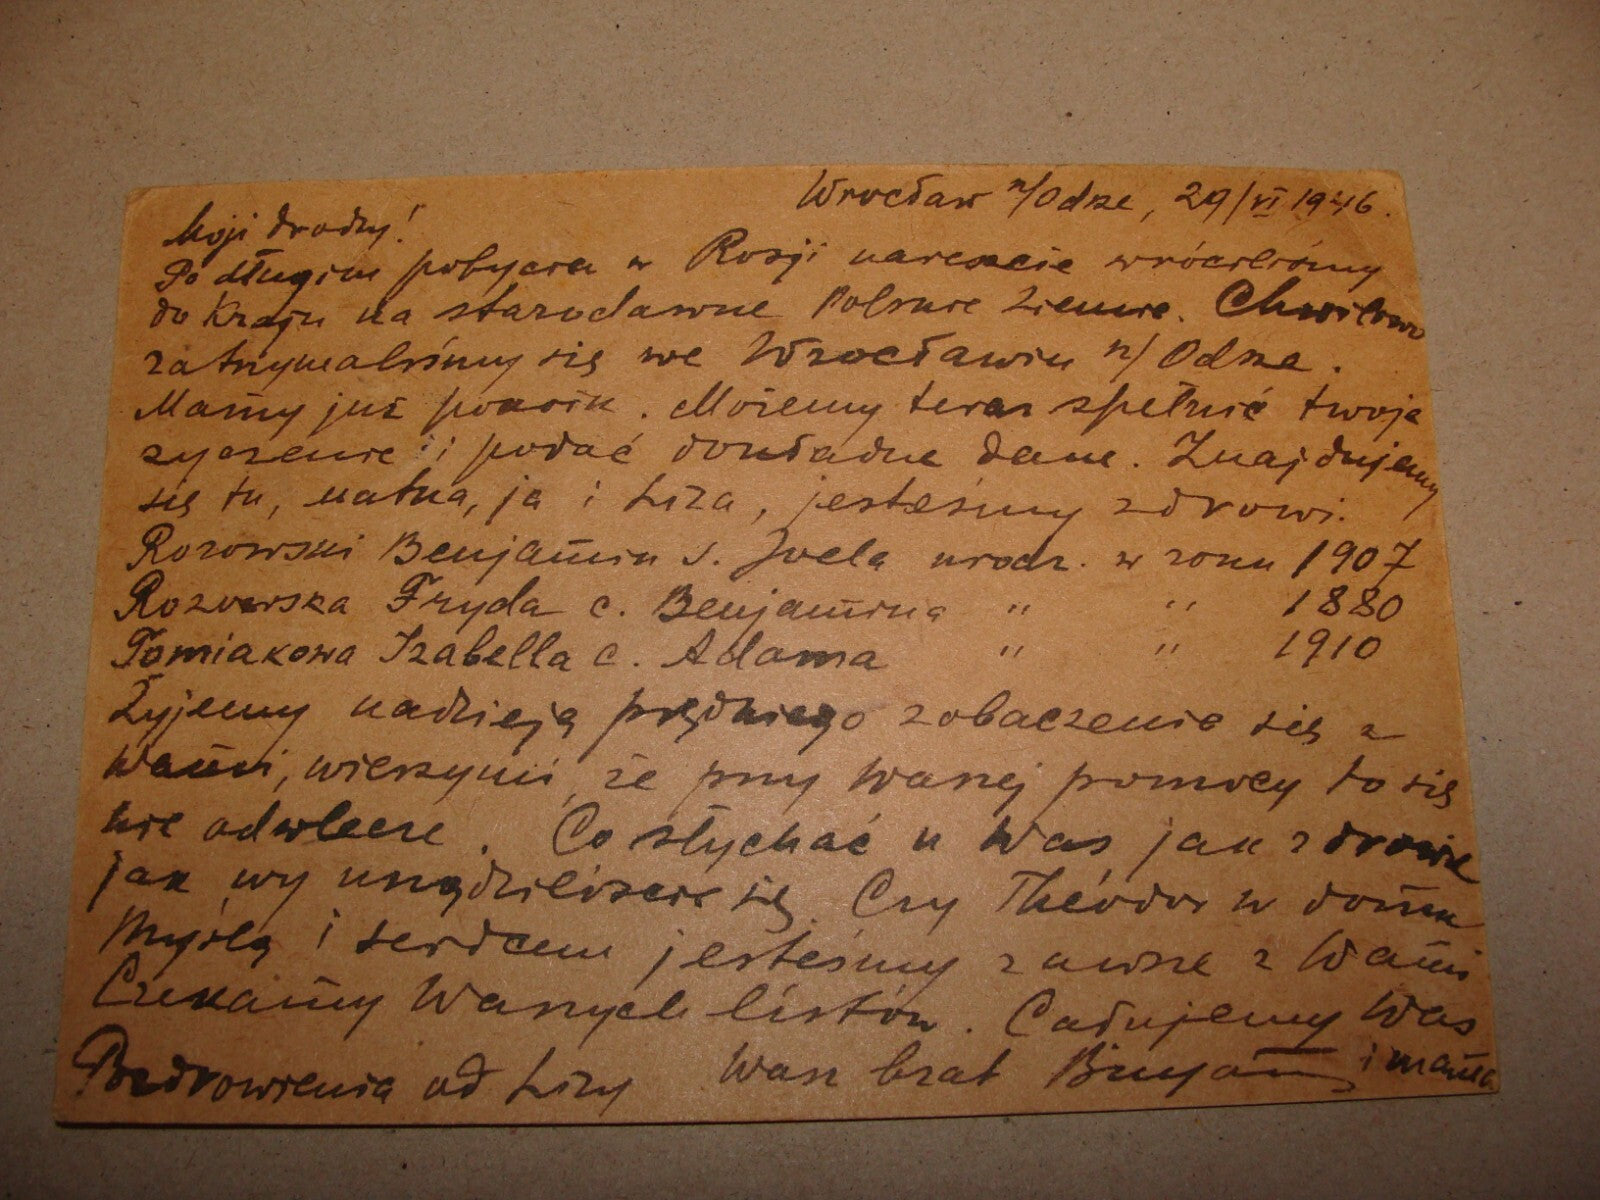 Wrocław n/Odze, 29/VI 1946.
Moji drodzy!
Po długim pobyciu w Rosji nareszcie wróciliśmy
do Kraju na starodawne Polskie Ziemie. Chwilowo
zatrzymaliśmy się we Wrocławiu n/Odze.
Mamy już pokoik. Możemy teraz spełnić twoje
życzenie i podać dokładne dane. Znajdujemy
się tu, matka, ja i Liza, jesteśmy zdrowi.
Rozowski Benjamin s. Joela urodz. w roku 1907
Rozowska Fryda c. Benjamina " " 1880
Tomiakowa Izabella c. Adama " " 1910
Żyjemy nadzieją prędkiego zobaczenie się z
Wami, wierzymi, że przy Waszej pomocy to się
nie odwlecze. Co słychać u Was jak zdrowie
jak wy urządziliście się. Czy Théodor w domu
Myślą i sercem jesteśmy zawsze z Wami
Czekamy Waszych listów. Całujemy Was
Pozdrowienia od Lizy Wasz brat i mama